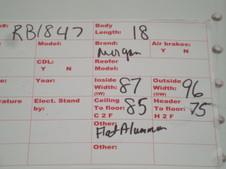 #: RB1847 Body Length: 18
Model: Brand: Morgan Air brakes: Y N
CDL: Y N Reefer Model:
Year: Inside Width: 87 (IW) Outside Width: 96 (OW)
rature Elect. Stand by: Ceiling To floor: 85 C 2 F Header To floor: 75 H 2 F
Other: Flat Alumman
Other: